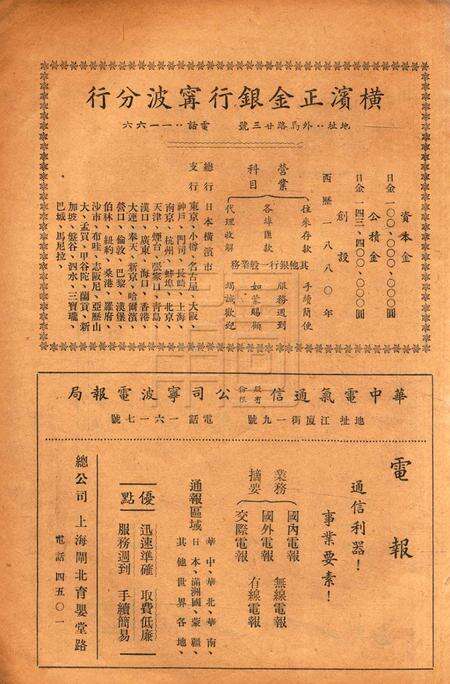 橫濱正金銀行寗波分行
地址：外馬路廿三號　電話：一一六六
資本金
日金一〇〇、〇〇〇、〇〇〇圓
公積金
日金一四三、四〇〇、〇〇〇圓
創設
西歷一八八〇年
營業科目
往來存款　手續簡便
各埠匯款　服務週到
代理收解　竭誠歡迎
其他銀行一般業務　如蒙賜顧
總行　日本橫濱市
支行　東京、小樽、名古屋、大阪、
神戶、門司、長崎、上海、
南京、杭州、蚌埠、北京、
天津、煙台、張家口、青島、
漢口、廣東、海口、香港、
大連、奉天、新京、哈爾濱、
營口、倫敦、巴黎、漢堡、
伯林、紐約、桑港、羅府、
沙市、布哇、志阪尼、亞歷山
大、孟買、甲谷陀、蘭貢、新
加坡、盤谷、泗水、三寶瓏、
巴城、馬尼拉
華中電氣通信股份有限公司寧波電報局
地址江廈街一九號　電話一六一七號
電報
通信利器！
事業要素！
業務摘要
國內電報　無線電報
國外電報　有線電報
交際電報
通報區域
華中、華北、華南、
日本、滿洲國、蒙疆、
其他世界各地、
優點
迅速準確　取費低廉
服務週到　手續簡易
總公司　上海閘北育嬰堂路
電話四五〇一